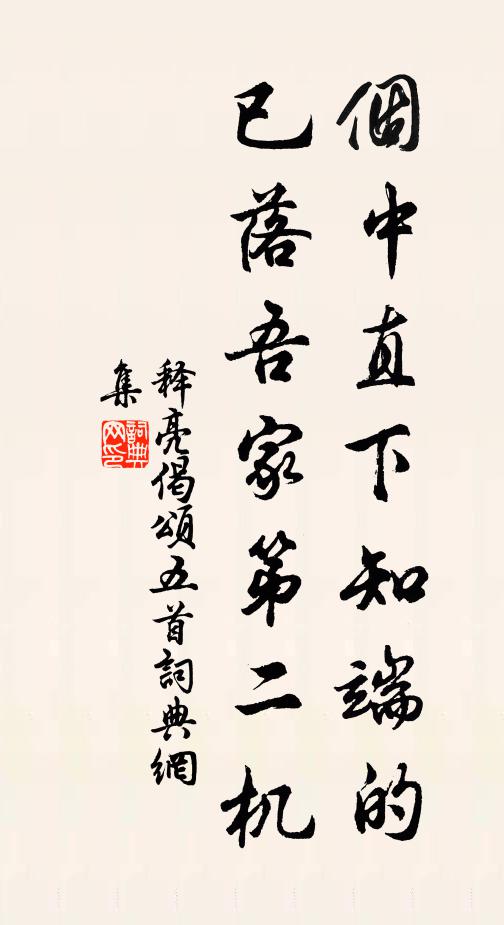 個中直下知端的
已落吾家第二机
释亮偈頌五首詞典網
集
詞典
网印